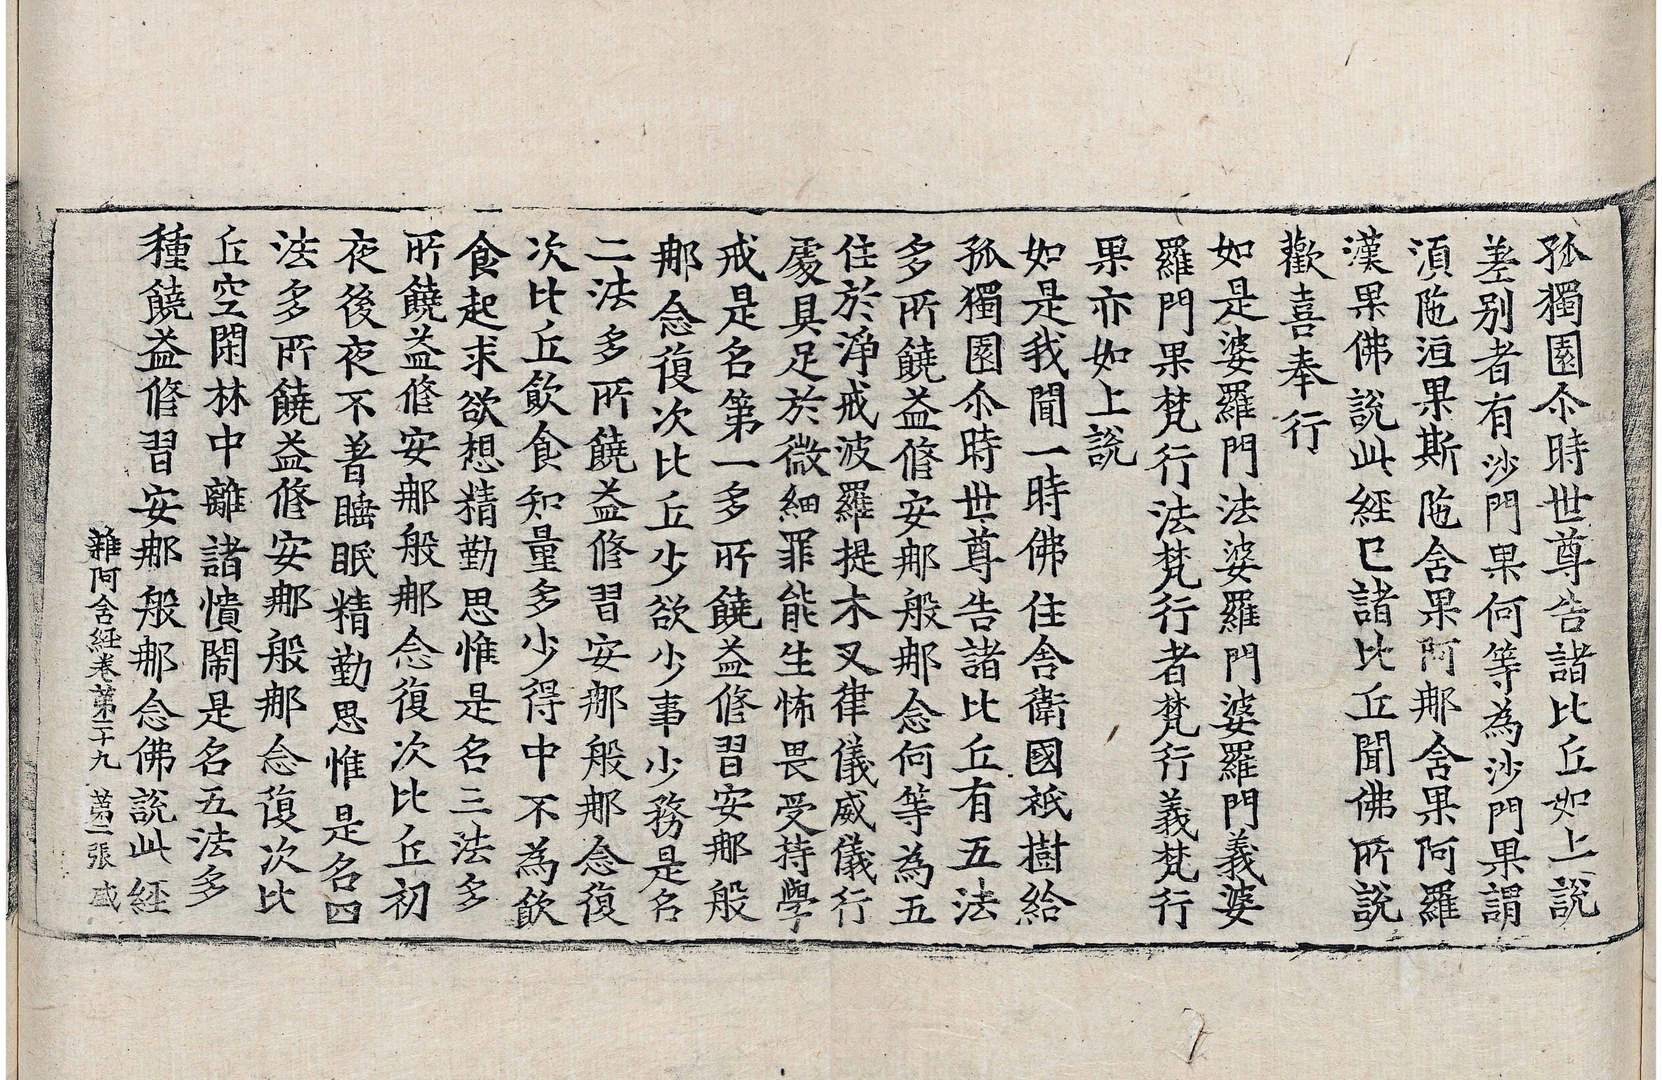 孤獨園尒時世尊告諸比丘如上說
差別者有沙門果何等為沙門果謂
湏陁洹果斯陁含果阿那含果阿羅
漢果佛說此經已諸比丘聞佛所說
歡喜奉行
如是婆羅門法婆羅門婆羅門義婆
羅門果梵行法梵行者梵行義梵行
果亦如上說
如是我聞一時佛住舍衛國祇樹給
孤獨園尒時世尊告諸比丘有五法
多所饒益修安那般那念何等為五
住於淨戒波羅提木叉律儀威儀行
處具足於微細罪能生怖畏受持學
戒是名第一多所饒益修習安那般
那念復次比丘少欲少事少務是名
二法多所饒益修習安那般那念復
次比丘飲食知量多少得中不為飲
食起求欲想精勤思惟是名三法多
所饒益修安那般那念復次比丘初
夜後夜不著睡眠精勤思惟是名四
法多所饒益修安那般那念復次比
丘空閑林中離諸憒鬧是名五法多
種饒益修習安那般那念佛說此經
雜阿含經卷第二十九 第二張 盛